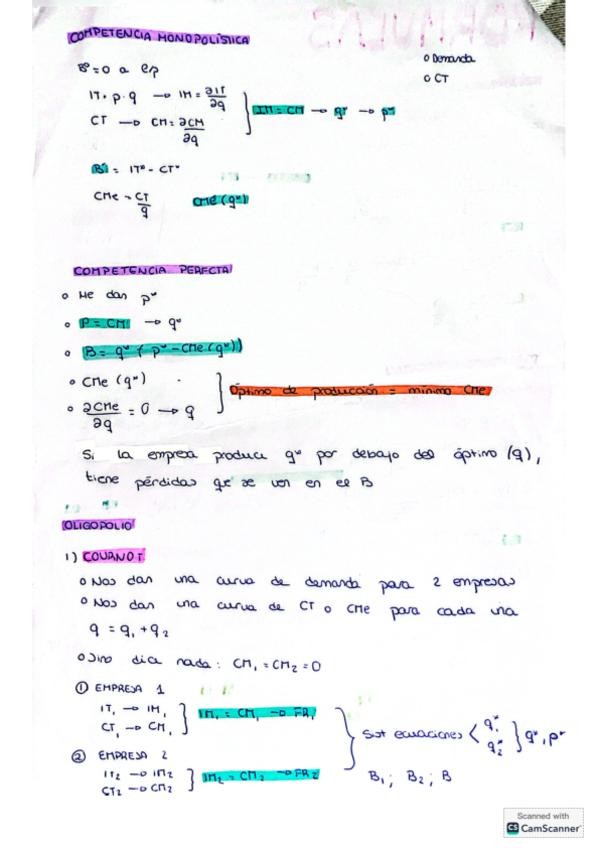 COMPETENCIA MONOPOLÍSTICA
o Demanda
o CT
Bº = 0 a e/p
IT = p · q → IM = ∂IT/∂q
CT → CM = ∂CM/∂q
IM = CM → q* → p*
Bº = IT* - CT*
CMe = CT/q CMe (q*)
COMPETENCIA PERFECTA
o Me dan p*
o P = CM → q*
o B = q* (p* - CMe (q*))
o CMe (q*)
o ∂CMe/∂q = 0 → q
Óptimo de producción = mínimo CMe
Si la empresa produce q* por debajo del óptimo (q),
tiene pérdidas que se ven en el B
OLIGOPOLIO
1) COURNOT
o Nos dan una curva de demanda para 2 empresas
o Nos dan una curva de CT o CMe para cada una
q = q₁ + q₂
o Si no dice nada: CM₁ = CM₂ = 0
① EMPRESA 1
IT₁ → IM₁
CT₁ → CM₁
IM₁ = CM₁ → FR₁
② EMPRESA 2
IT₂ → IM₂
CT₂ → CM₂
IM₂ = CM₂ → FR₂
Sist ecuaciones < q₁* q₂* } q*, p*
B₁; B₂; B
Scanned with
CS CamScanner